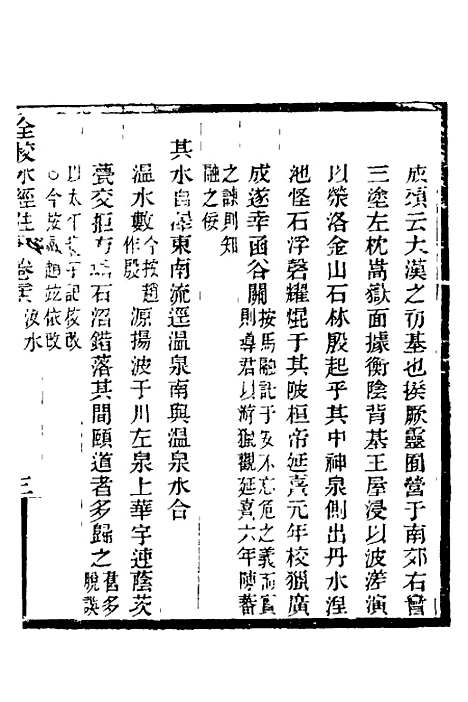 成頌云大漢之初基也揆厥靈囿營于南郊右矕
三塗左枕嵩嶽面據衡陰背基王屋浸以波溠演
以滎洛金山石林殷起乎其中神泉側出丹水湼
池怪石浮磬耀焜于其陂桓帝延熹元年校獵廣
成遂幸函谷關按馬融託于安不忘危之義而直則導君以游獵觀延熹六年陳蕃
之諫則知融之佞
其水自澤東南流逕温泉南與温泉水合
温水數今按趙作殷源揚波于川左泉上華宇連蔭茨
甍交拒方塘石沼錯落其間頤道者多歸之舊多脫誤
以太平記校改○今按趙竝依改
全校水經注 卷 汝水
三